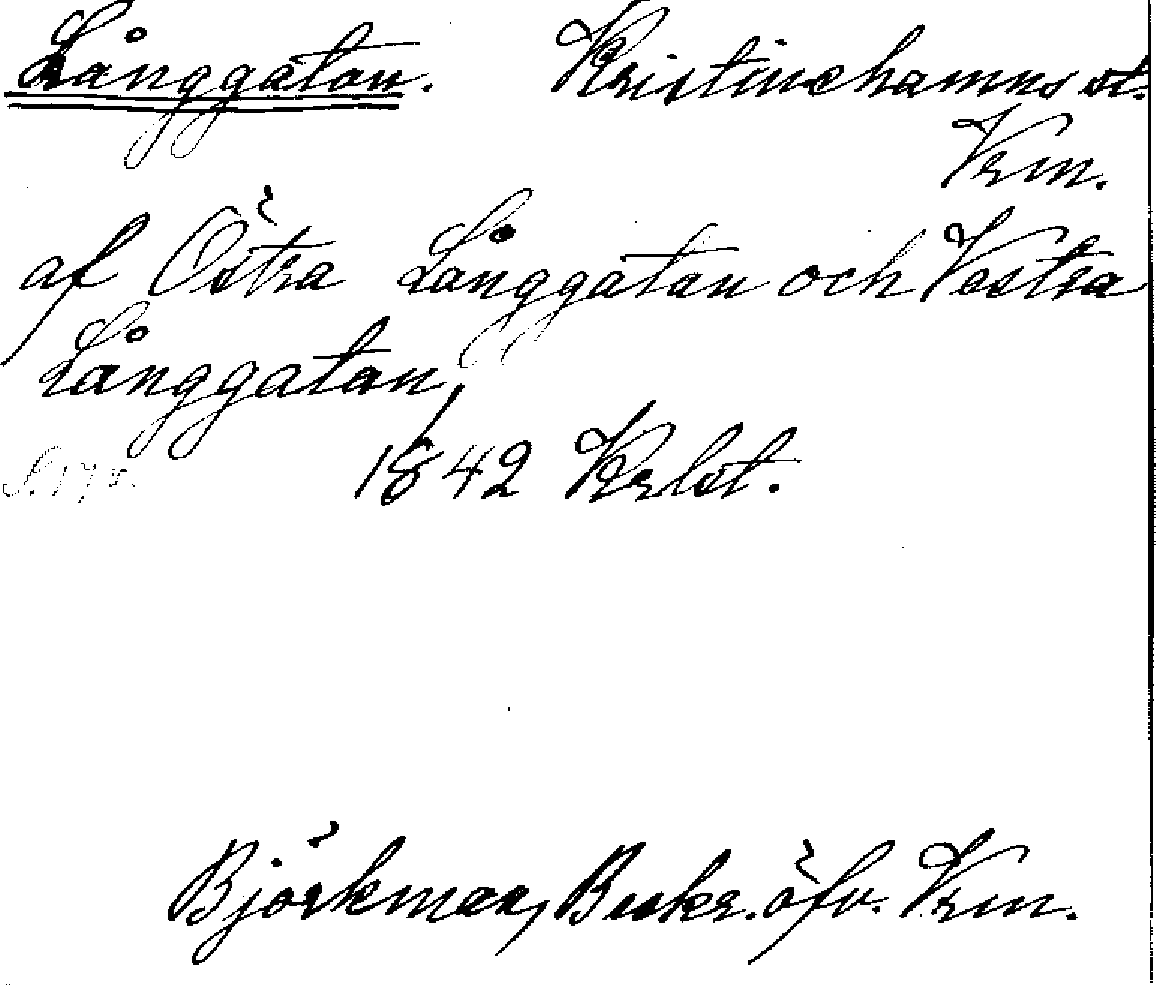 Långgatan. Kristinehamns st.
Vrm.
af Östra Långgatan och Vestra
Långgatan,
1842 Krlst.
Björkman, Beskr. öfv. Vrm.